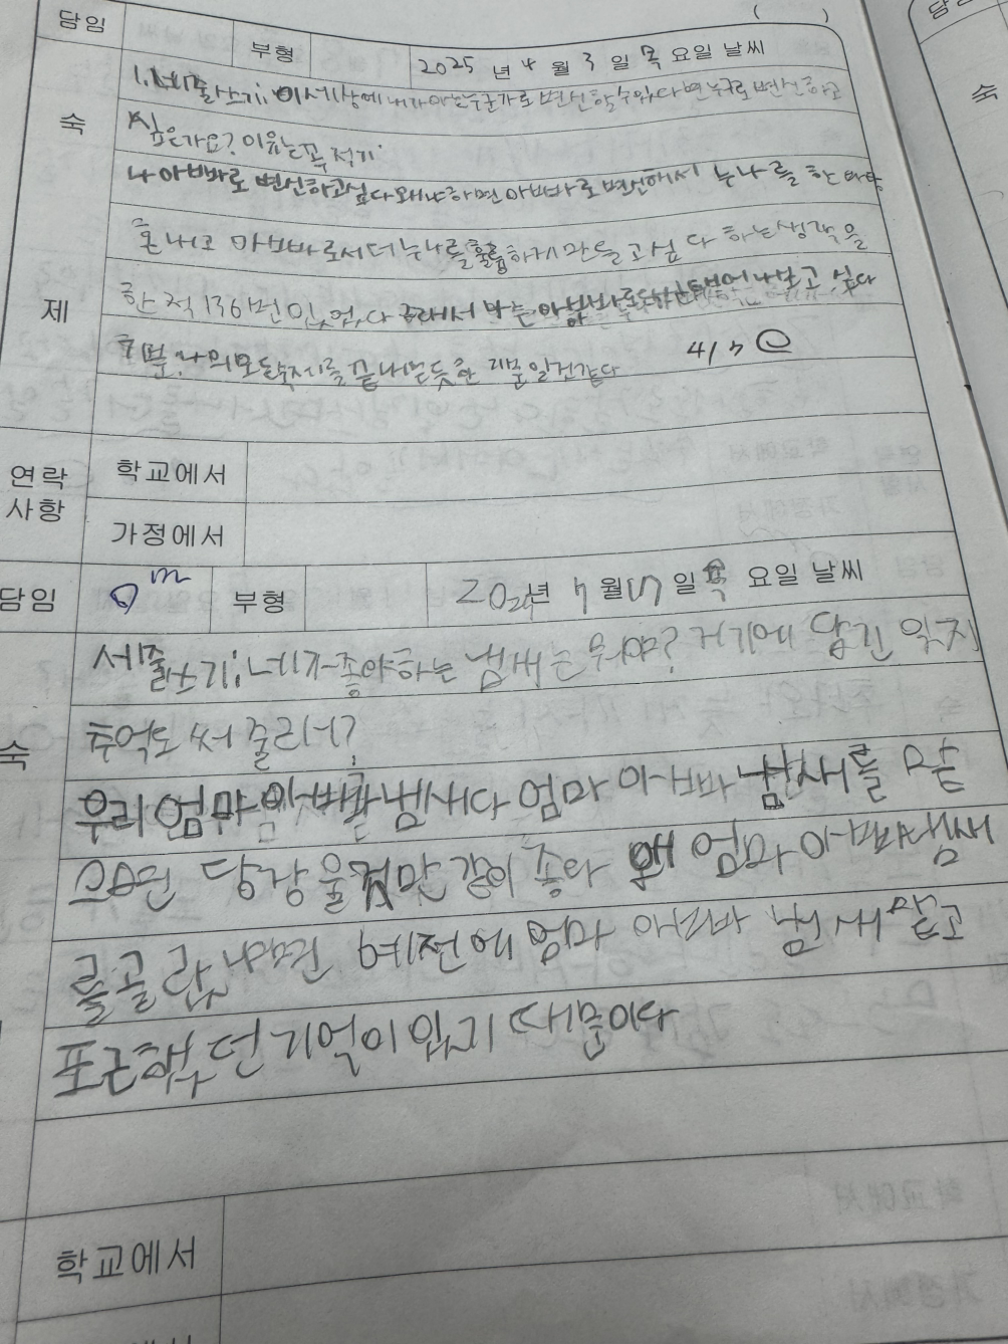 담임 부형 2025 년 4 월 3 일 목 요일 날씨 ( )
1. 세줄쓰기; 이세상에 내가 아는누군가로 변신할수있다면누구로변신하고
숙
싶은가요? 이유는꼭 적기
나 아빠로 변신하고싶다왜냐하면 아빠로 변신해서 누나를 한바탕
혼내고 아빠로서더누나를훌륭하게만들고싶다하는생각을
제
한적136번있었다 그래서 나는
기분: 나의모든숙제를 끝내는듯한 기분일건같다
연락 학교에서
사항
가정에서
담임 부형 2024년 7 월17일 목 요일 날씨
세줄쓰기; 네가좋아하는 냄새는 뭐야? 거기에 담긴
숙
추억도 써 줄래?
우리 엄마 아빠 냄새다 엄마 아빠 냄새를 맡
으면 당장 울것만 같이 좋다 왜 엄마 아빠냄새
를골랐냐면 예전에 엄마 아빠 냄새맡고
포근했던기억이있기 때문이다
학교에서